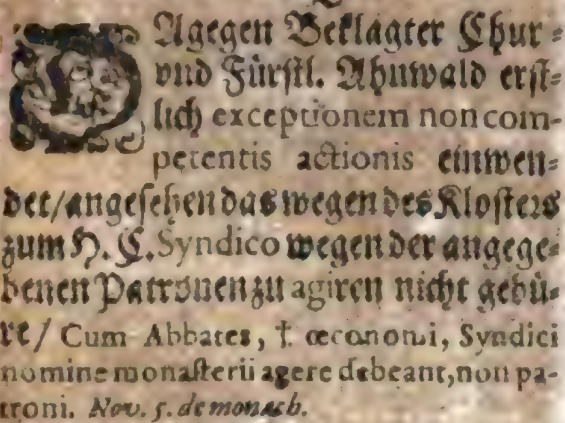 DAgegen Beklagter Chur-
vnd Fürstl. Ahnwald erst-
lich exceptionem non com-
petentis actionis einwen-
det/angesehen das wegen des Klosters
zum H. C. Syndico wegen der angege-
benen Patronen zu agiren nicht gebü-
re/ Cum Abbates, † œconomi, Syndici
nomine monasterii agere debeant, non pa-
troni. Nov. 5. de monach.